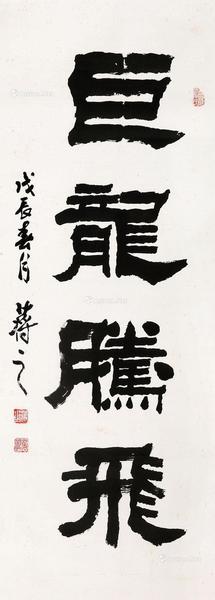 巨龍騰飛
戊辰春月 蔣之